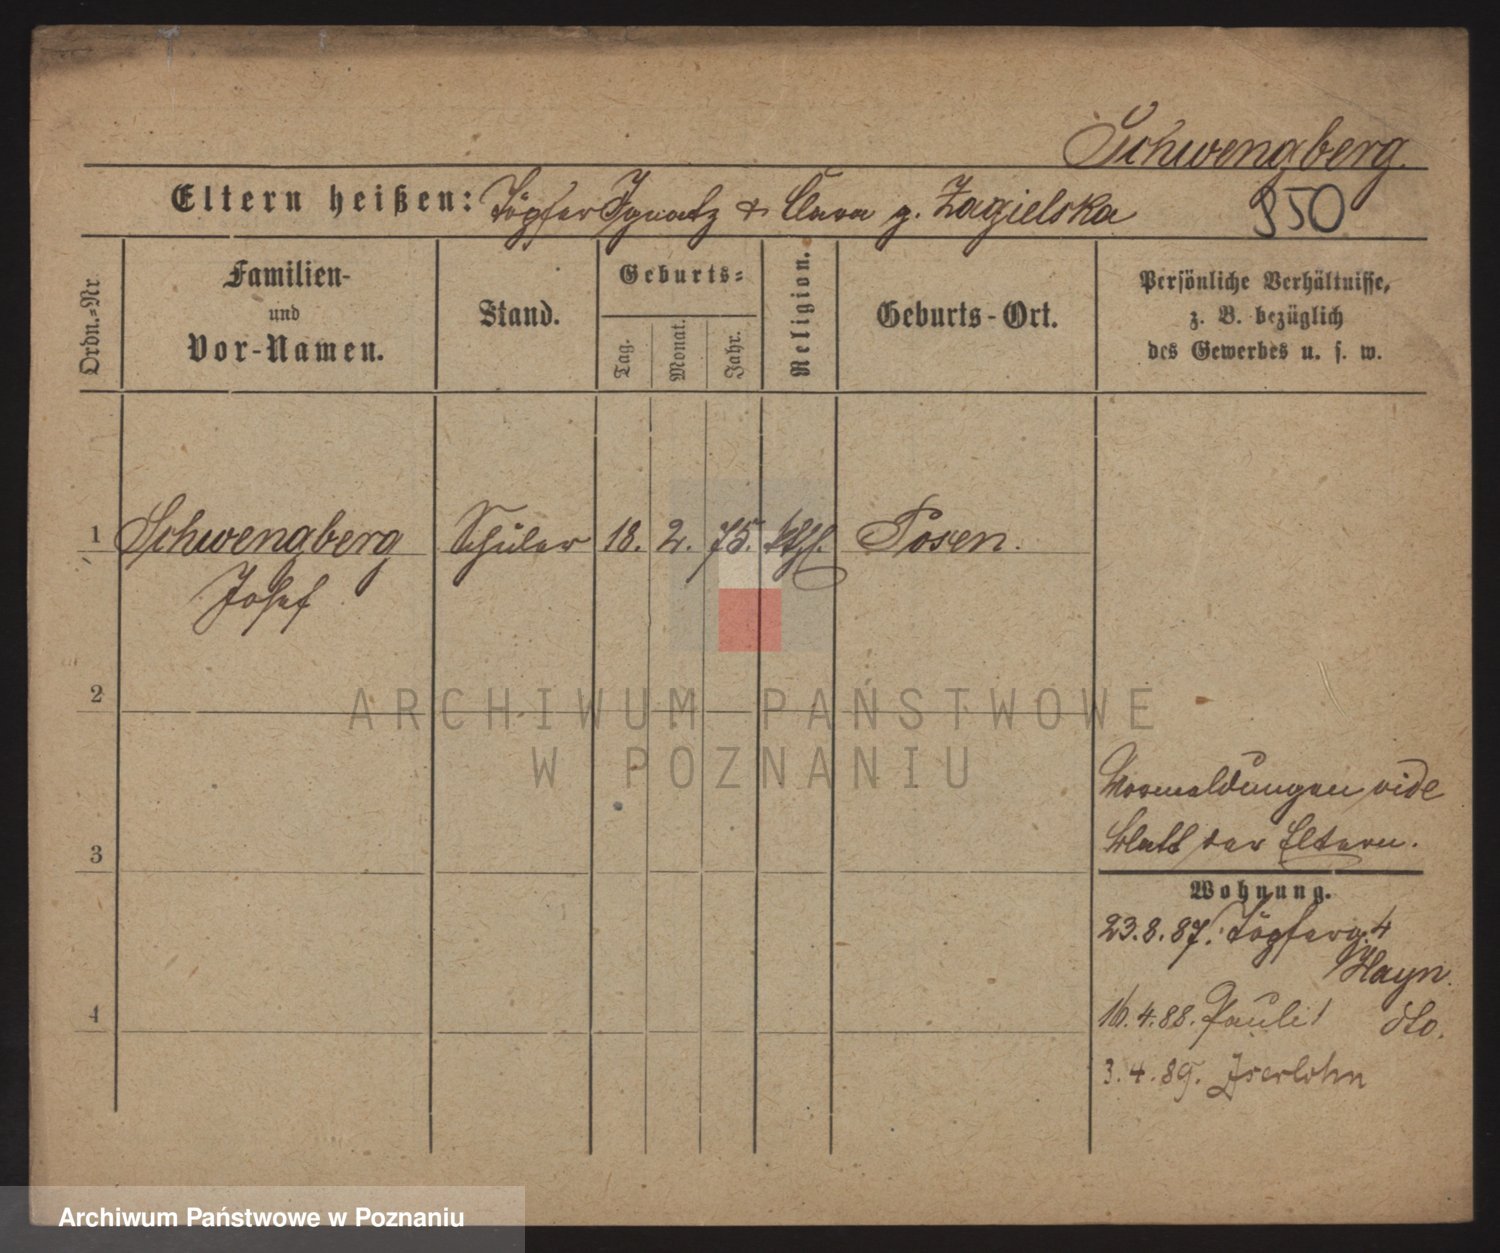 Schwengberg.
Eltern heißen: Töpfer Ignatz & Clara g. Zagielska
950
Ordn.=Nr
Familien-
und
Vor-Namen.
Stand.
Geburts=
Tag.
Monat.
Jahr.
Religion.
Geburts-Ort.
Persönliche Verhältnisse,
z. B. bezüglich
des Gewerbes u. s. w.
1 Schwengberg Schüler 18. 2. 75. kth. Posen.
Josef
2
ARCHIWUM PAŃSTWOWE
W POZNANIU
Vormeldungen vide
3 Blatt der Eltern.
Wohnung.
23.8.87. Töpferg. 4
Hayn.
4 16.4.88. Pauli 1 dto.
3.4.89. Iserlohn
Archiwum Państwowe w Poznaniu